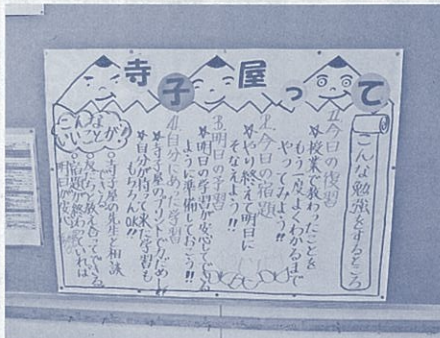 寺子屋って
こんな勉強をするところ
1.今日の復習
☆授業で教わったことを
もう一度よくわかるまで
やってみよう!!
2.今日の宿題
☆やり終えて明日に
そなえよう!!
3.明日の予習
☆明日の学習が安心してできる
ように準備しておこう!!
4.自分にあった学習
☆寺子屋のプリントでためし
☆自分が持って来た学習も
もちろんOK!!
こんな
いいことが!
寺子屋の先生と相談
できる